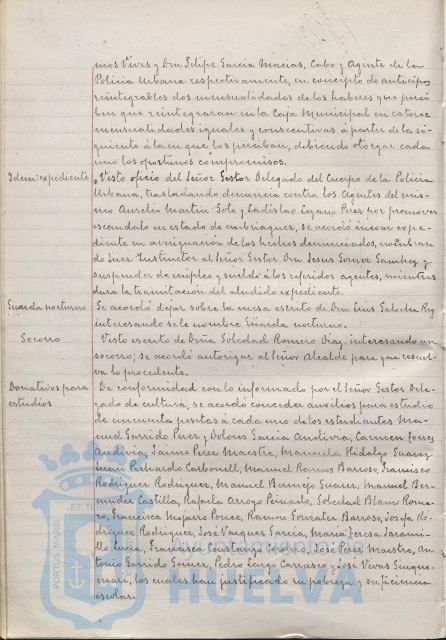 mos Vives y Don Felipe Garcia Macias, Cabo y Agente de la
Policia Urbana respectivamente, en concepto de anticipos
reintegrables dos mensualidades de los haberes que perci
ben que reintegraran en la Caja Municipal en catorce
mensualidades iguales y consecutivas á partir de la si-
guiente á la en que los perciban, debiendo otorgar cada
uno los oportunos compromisos.
Idem: expediente Visto oficio del Señor Gestor Delegado del Cuerpo de la Policia
Urbana, trasladando denuncia contra los Agentes del mis-
mo Aurelio Martin Soto y Ladislao Lozano Perez por promover
escandalo en estado de embriaguez, se acordó incoar expe-
diente en averiguacion de los hechos denunciados, nombran-
do Juez Instructor al Señor Gestor Don Jesus Gomez Sanchez y
suspender de empleo y sueldo á los referidos agentes, mientras
dura la tramitacion del aludido expediente.
Guarda nocturno Se acordó dejar sobre la mesa escrito de Don Luis Galocha Rey
interesando se le nombre Guarda nocturno.
Socorro Visto escrito de Doña Soledad Romero Diaz, interesando un
socorro; se acordó autorizar al Señor Alcalde para que resuel-
va lo procedente.
Donativos para De conformidad con lo informado por el Señor Gestor Dele-
estudios gado de cultura, se acordó conceder auxilios para estudio
de cincuenta pesetas á cada uno de los estudiantes Ma-
nuel Garrido Perez y Dolores Garcia Andivia, Carmen Torres
Andivia, Jaime Perez Maestre, Manuela Hidalgo Suarez,
Juan Pichardo Carbonell, Manuel Ramos Barroso, Francisco
Rodriguez Rodriguez, Manuel Bermejo Suarez, Manuel Ber-
mudez Castilla, Rafaela Arroyo Peinado, Soledad Blanc Rome-
ro, Francisca Mojarro Ponce, Ramon Gonzalez Barroso, Josefa Ro-
driguez Rodriguez, Jose Vazquez Garcia, Maria Teresa Jarami-
llo Lucia, Francisca Constanza Cordero, Jose Perez Maestre, An-
tonio Garrido Gomez, Pedro Largo Carrasco y Jose Vivas
mari, los cuales han justificado su pobreza y suficiencia
escolar.
PORTUS MARIS ET TERRAE
HUELVA